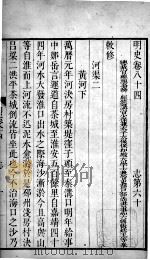 明史卷八十四　志第六十
敕修
河渠二
黃河下
萬曆元年河決房村築堤窪子頭至秦溝口明年給事
中鄭岳言運道自茶城至淮安五百餘里自嘉靖四十
四年河水大發淮口出水之際海沙漸淤今且高與山
等自淮而上河流不迅泥水愈淤於是邳州淺房村決
呂梁二洪平茶城倒流皆坐此也今不治海口之沙乃